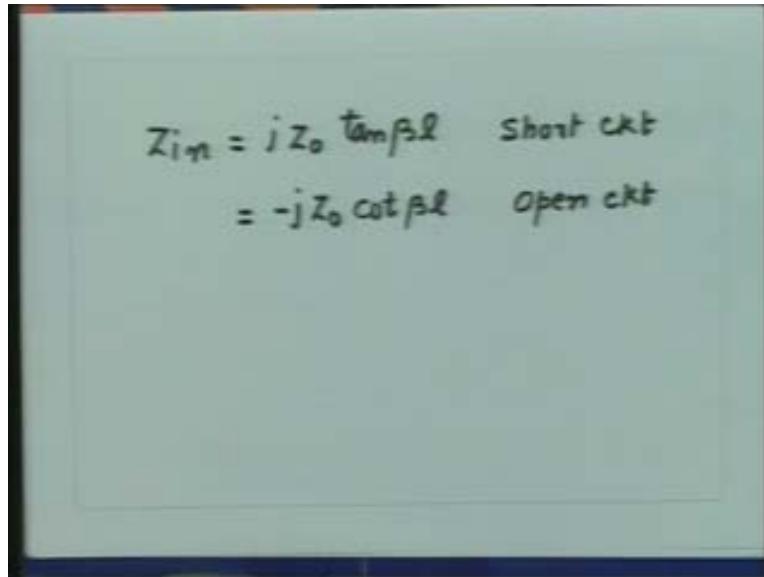 Zin = j Z₀ tan βl short ckt
= -j Z₀ cot βl open ckt